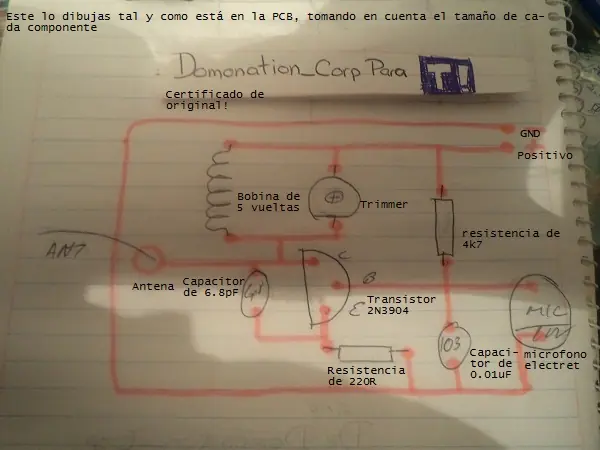 Este lo dibujas tal y como está en la PCB, tomando en cuenta el tamaño de ca-
da componente
Domonation_Corp Para T!
Certificado de
original!
GND
Positivo
Bobina de
5 vueltas
Trimmer
resistencia de
4k7
ANT
Antena
Capacitor
de 6.8pF
C
B
E
Transistor
2N3904
MIC
103
Resistencia
de 220R
Capaci-
tor de
0.01uF
microfono
electret